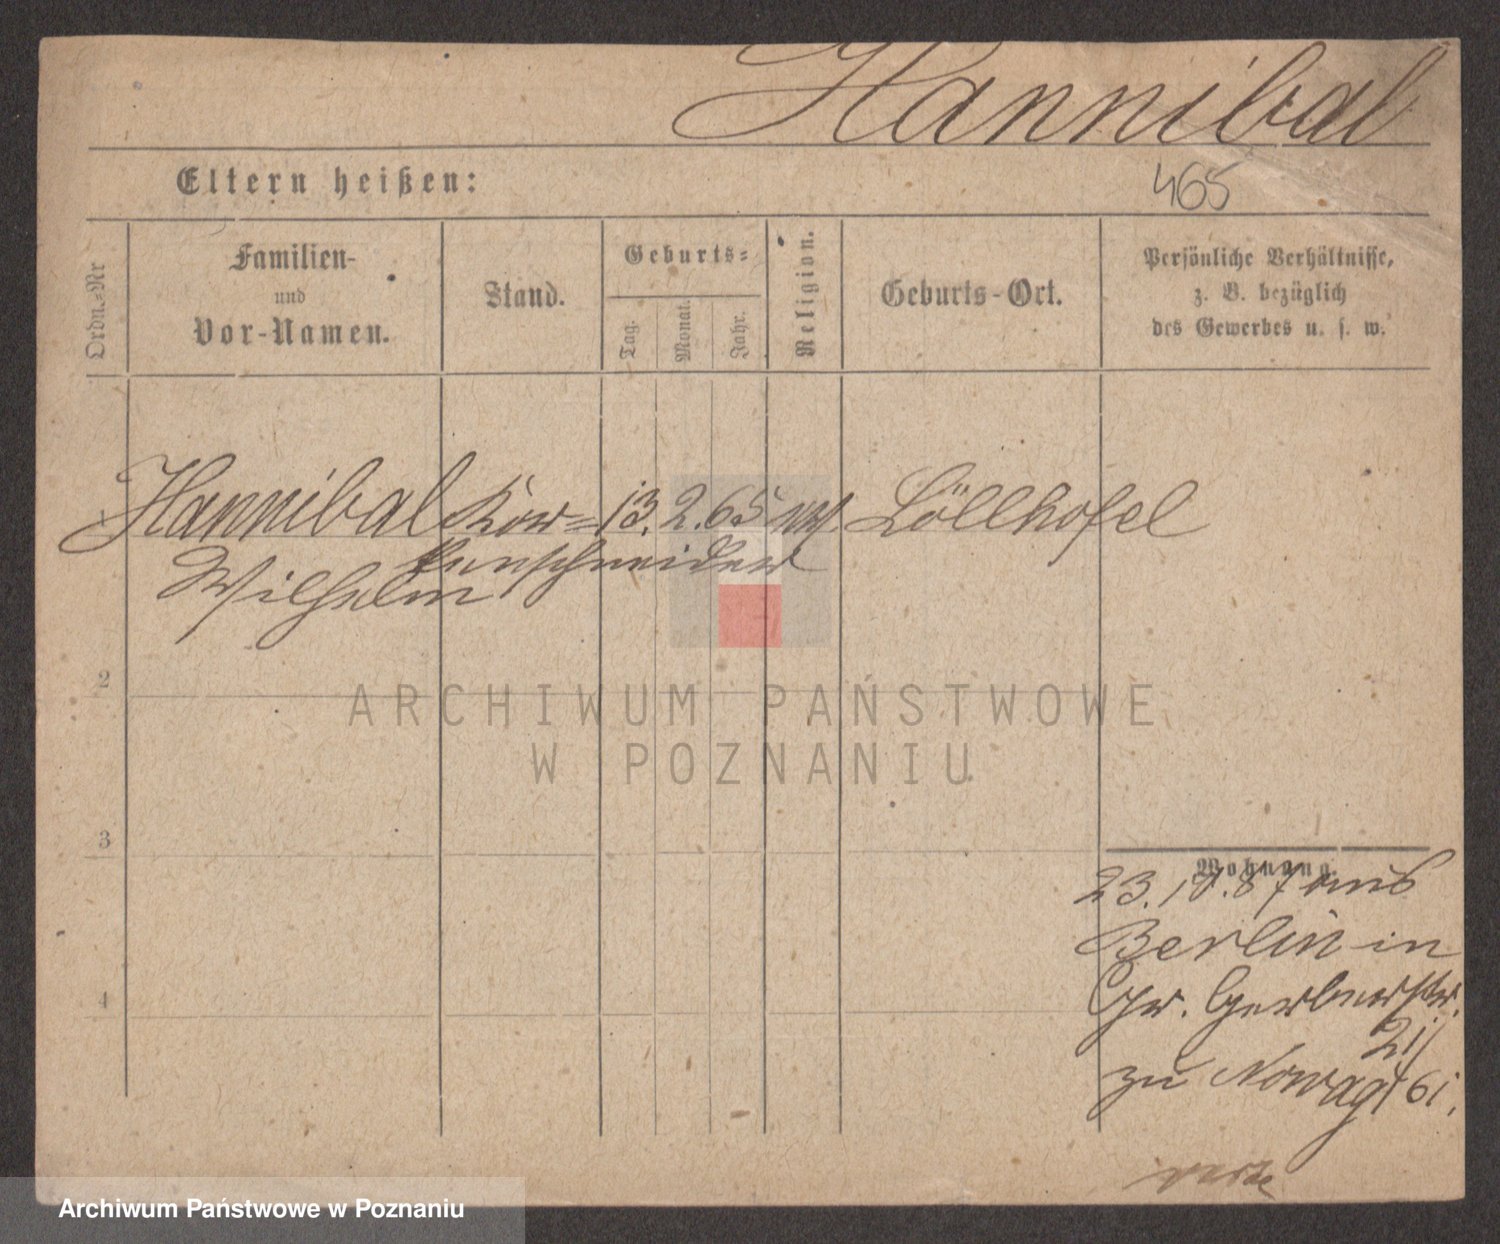 Hannibal
465
Eltern heißen:
Ordn.-Nr
Familien-
und
Vor-Namen.
Stand.
Geburts-
Tag.
Monat.
Jahr.
Religion.
Geburts-Ort.
Persönliche Verhältnisse,
z. B. bezüglich
des Gewerbes u. s. w.
1
Hannibal 13. 2. 65 Löllhofel
Wilhelm
2
ARCHIWUM PAŃSTWOWE
W POZNANIU
3
Wohnung.
23. 87 aus
Berlin in
Gr. Gerberstr.
21/
zu Nowag 61.
4
verte
Archiwum Państwowe w Poznaniu